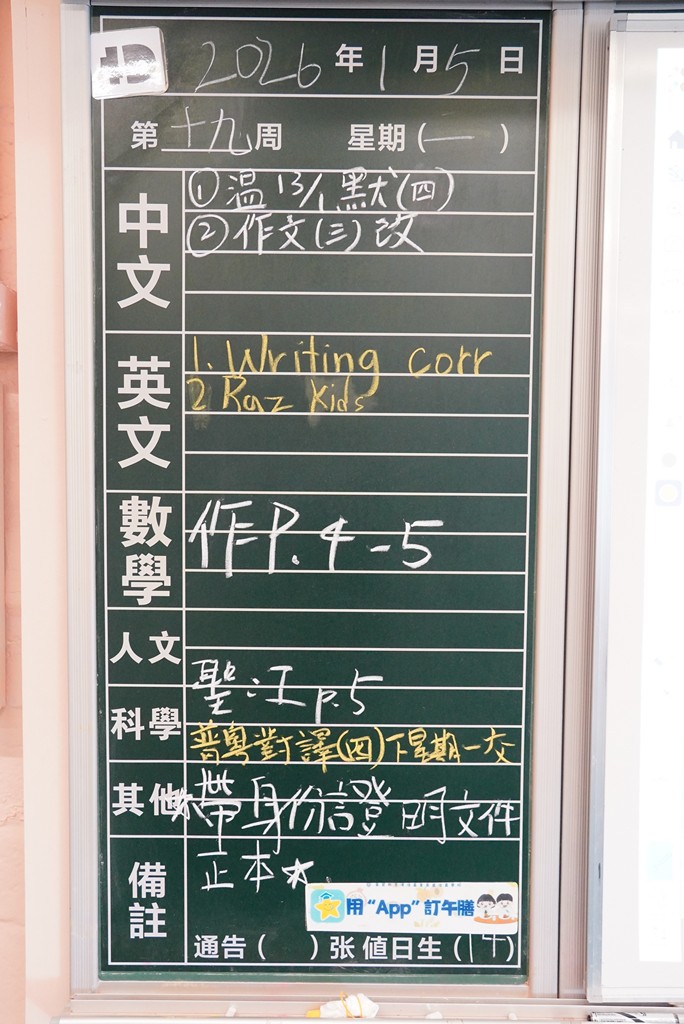 2026年1月5日
第十九周 星期(一)
中文
①温13/1默(四)
②作文(三)改
英文
1. Writing corr
2 Raz Kids
數學
作P.4-5
人文
聖汪p.5
科學
普粵對譯(四)下星期一交
其他
帶身份證明文件
正本★
備註
用“App”訂午膳
通告( )张 值日生(14)